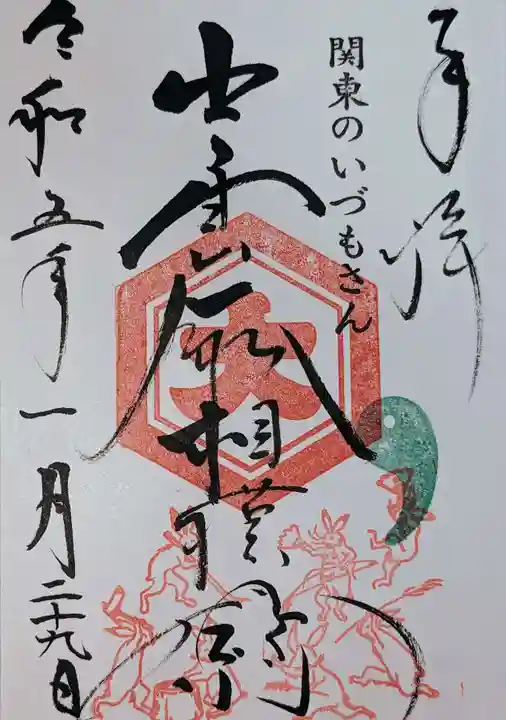 奉拝
関東のいづもさん
出雲大社相模分祠
大
令和五年一月二十九日